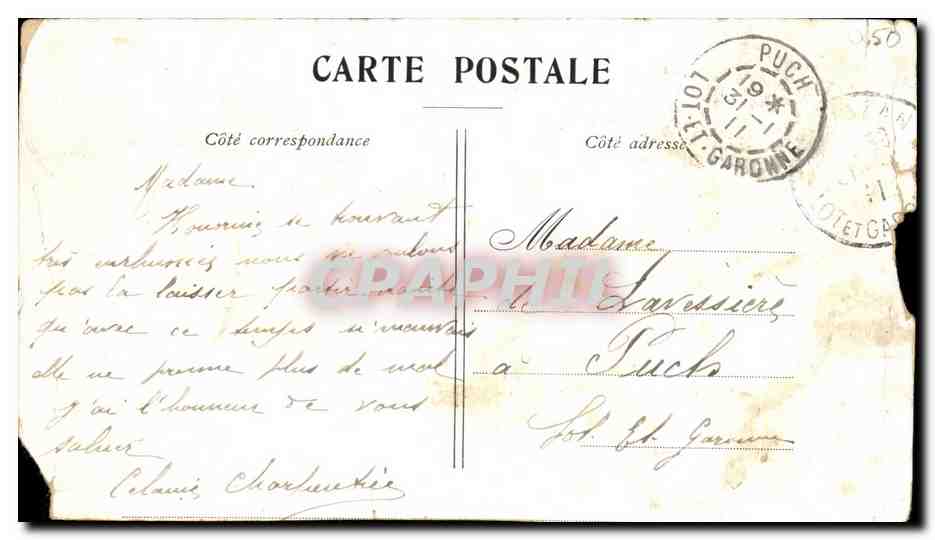 CARTE POSTALE
0,50
PUCH
19 *
31-1
11
LOT-ET-GARONNE
11
LOT ET GAR
Côté correspondance
Côté adresse
Madame
se trouvant
très nous ne voulons
pas la laisser partir
qu'avec ce temps si mauvais
elle ne prenne plus de mal
j'ai l'honneur de vous
saluer
Charpentier
Madame
de Lavessière
à Puch
Lot. Et. Garonne
CPAPHIL